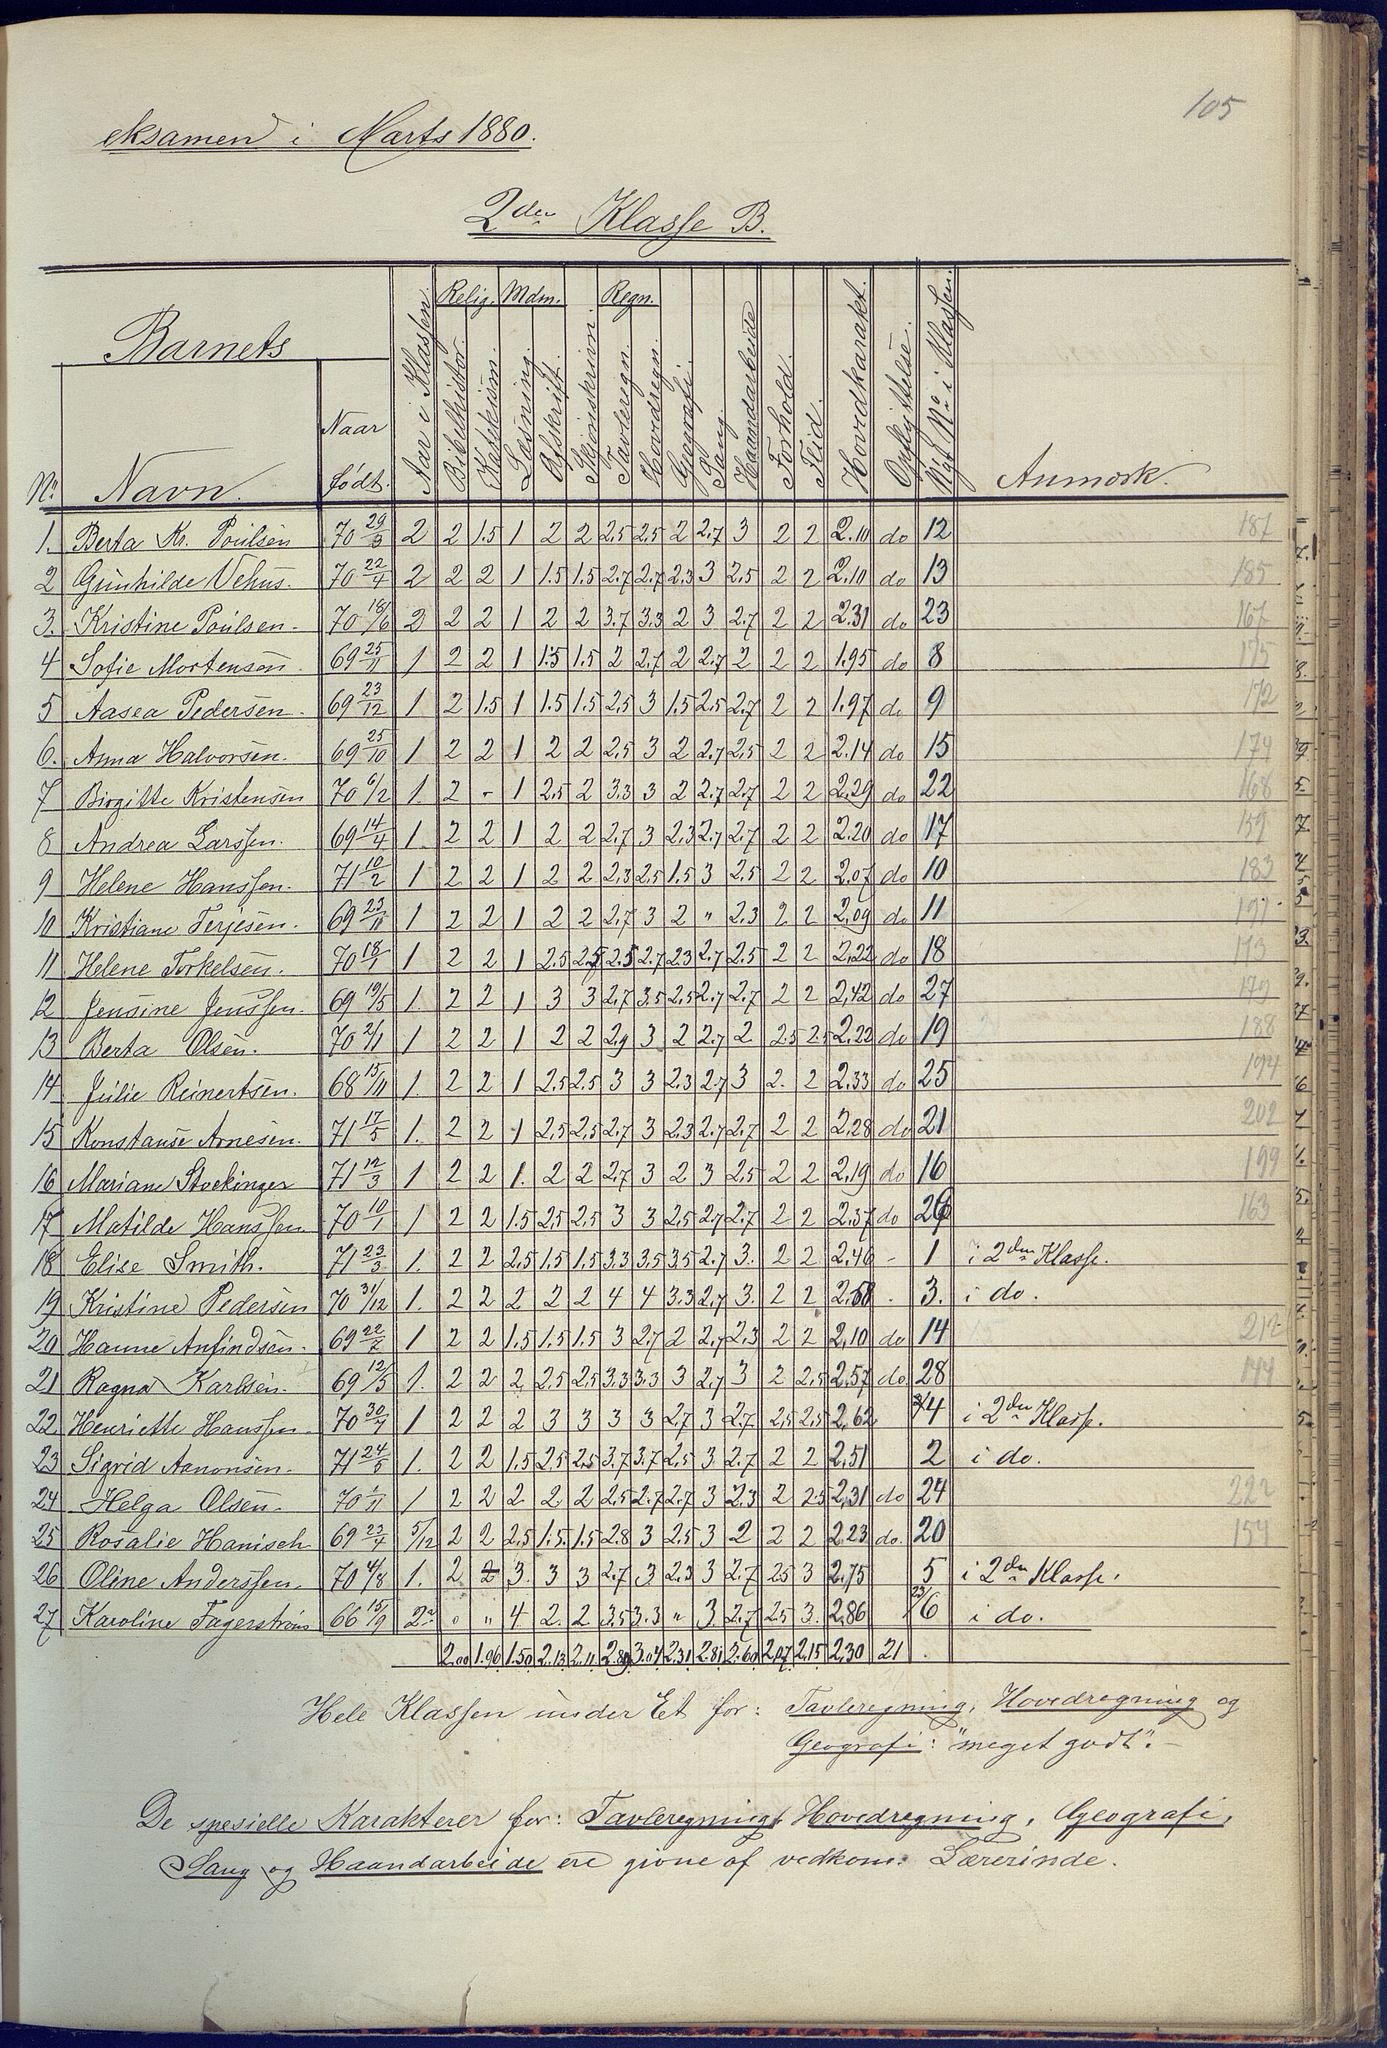 105
eksamen i Marts 1880.
2den Klasse B.
Barnets
Relig. Mdm. Regn.
No. Navn. Naar født. Aar i Klassen. Bibelhistor. Katekism. Læsning. Afskrift. Skjönskrivn. Tavleregn. Hovedregn. Geografi. Sang. Haandarbeide Forhold. Flid. Hovedkarakt. Opflyttelse. Nyt No. i Klassen. Anmærk.
1. Berta Kr. Poulsen 70 29/3 2 2 1.5 1 2 2 2.5 2.5 2 2.7 3 2 2 2.10 do 12 187
2 Gunhilde Vehus. 70 22/4 2 2 2 1 1.5 1.5 2.7 2.7 2.3 3 2.5 2 2 2.10 do 13 185
3. Kristine Poulsen. 70 18/6 2 2 2 1 2 2 3.7 3.3 2 3 2.7 2 2 2.31 do 23 167
4 Sofie Mortensen. 69 25/11 1 2 2 1 1.5 1.5 2 2.7 2 2.7 2 2 2 1.95 do 8 175
5 Aasea Pedersen. 69 23/12 1 2 1.5 1 1.5 1.5 2.5 3 1.5 2.5 2.7 2 2 1.97 do 9 172
6. Anna Halvorsen. 69 25/10 1 2 2 1 2 2 2.5 3 2 2.7 2.5 2 2 2.14 do 15 174
7 Birgitte Kristensen 70 6/2 1. 2 - 1 2.5 2 3.3 3 2 2.7 2.7 2 2 2.29 do 22 168
8 Andrea Larssen. 69 14/4 1 2 2 1 2 2 2.7 3 2.3 2.7 2.7 2 2 2.20 do 17 159
9 Helene Hanssen. 71 10/2 1 2 2 1 2 2 2.3 2.5 1.5 3 2.5 2 2 2.07 do 10 183
10 Kristiane Terjesen. 69 23/11 1 2 2 1 2 2 2.7 3 2 " 2.3 2 2 2.09 do 11 191
11 Helene Torkelsen. 70 18/1 1 2 2 1 2.5 2.5 2.5 2.7 2.3 2.7 2.5 2 2 2.22 do 18 173
12 Jensine Jenssen. 69 19/5 1. 2 2 1 3 3 2.7 3.5 2.5 2.7 2.7 2 2 2.42 do 27 179
13 Berta Olsen. 70 2/1 1 2 2 1 2 2 2.9 3 2 2.7 2 2.5 2.5 2.22 do 19 188
14 Julie Reinertsen. 68 15/11 1. 2 2 1 2.5 2.5 3 3 2.3 2.7 3 2. 2 2.33 do 25 194
15 Konstanse Arnesen. 71 17/5 1. 2 2 1 2.5 2.5 2.7 3 2.3 2.7 2.7 2 2 2.28 do 21 202
16 Mariane Stockinger 71 12/3 1 2 2 1. 2 2 2.7 3 2 3 2.5 2 2 2.19 do 16 199
17 Matilde Hanssen. 70 10/1 1 2 2 1.5 2.5 2.5 3 3 2.5 2.7 2.7 2 2 2.37 do 26 163
18 Elise Smith. 71 23/3 1. 2 2 2.5 1.5 1.5 3.3 3.5 3.5 2.7 3. 2 2 2.46 - 1 i 2den Klasse.
19 Kristine Pedersen 70 31/12 1. 2 2 2 2 2 4 4 3.3 2.7 3. 2 2 2.58 . 3. i do.
20 Hanne Anfindsen. 69 22/7 1 2 2 1.5 1.5 1.5 3 2.7 2 2.7 2.3 2 2 2.10 do 14 212
21 Ragna Karlsen. 69 12/5 1. 2 2 2 2.5 2.5 3.3 3.3 3 2.7 3 2 2.5 2.57 do. 28 144
22 Henriette Hanssen. 70 30/7 1 2 2 2 3 3 3 3 2.7 3 2.7 2.5 2.5 2.62 4 i 2den Klasse.
23 Sigrid Aanonsen. 71 24/5 1. 2 2 1.5 2.5 2.5 3.7 3.7 2.5 3 2.7 2 2 2.51 2 i do.
24 Helga Olsen. 70 1/11 1 2 2 2 2 2 2.5 2.7 2.7 3 2.3 2 2.5 2.31 do 24 222
25 Rosalie Hanisch 69 23/4 5/12 2 2 2.5 1.5. 1.5 2.8 3 2.5 3 2 2 2 2.23 do. 20 154
26 Oline Anderssen. 70 4/8 1. 2 2 3. 3 3 2.7 3 2.3 3 2.7 2.5 3 2.75 5 i 2den Klasse.
27 Karoline Fagerstrøm 66 15/9 2 " " 4 2. 2 3.5 3.3 " 3 2.7 2.5 3. 2.86 6 i do.
2.00 1.96 1.50 2.13 2.11 2.89 3.04 2.31 2.81 2.60 2.07 2.15 2.30 21
Hele Klassen under Et for: Tavleregning, Hovedregning og
Geografi: "meget godt". -
De spesielle Karakterer for: Tavleregning, Hovedregning, Geografi,
Sang og Haandarbeide ere givne af vedkom. Lærerinde.